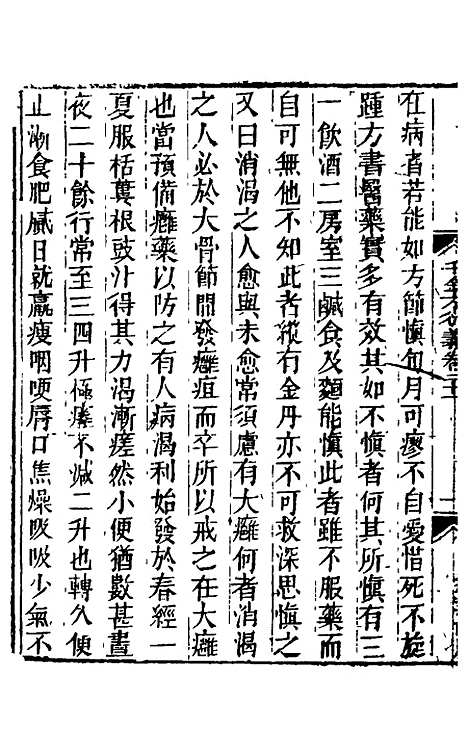 千金方衍義卷二十一
在病者若能如方節慎旬月可瘳不自愛惜死不旋
踵方書醫藥實多有效其如不慎者何其所慎有三
一飲酒二房室三鹹食及麵能慎此者雖不服藥而
自可無他不知此者縱有金丹亦不可救深思慎之
又曰消渴之人愈與未愈常須慮有大癰何者消渴
之人必於大骨節間發癰疽而卒所以戒之在大癰
也當預備癰藥以防之有人病渴利始發於春經一
夏服栝蔞根豉汁得其力渴漸瘥然小便猶數甚晝
夜二十餘行常至三四升極瘥不減二升也轉久便
止漸食肥膩日就羸瘦咽哽唇口焦燥吸吸少氣不